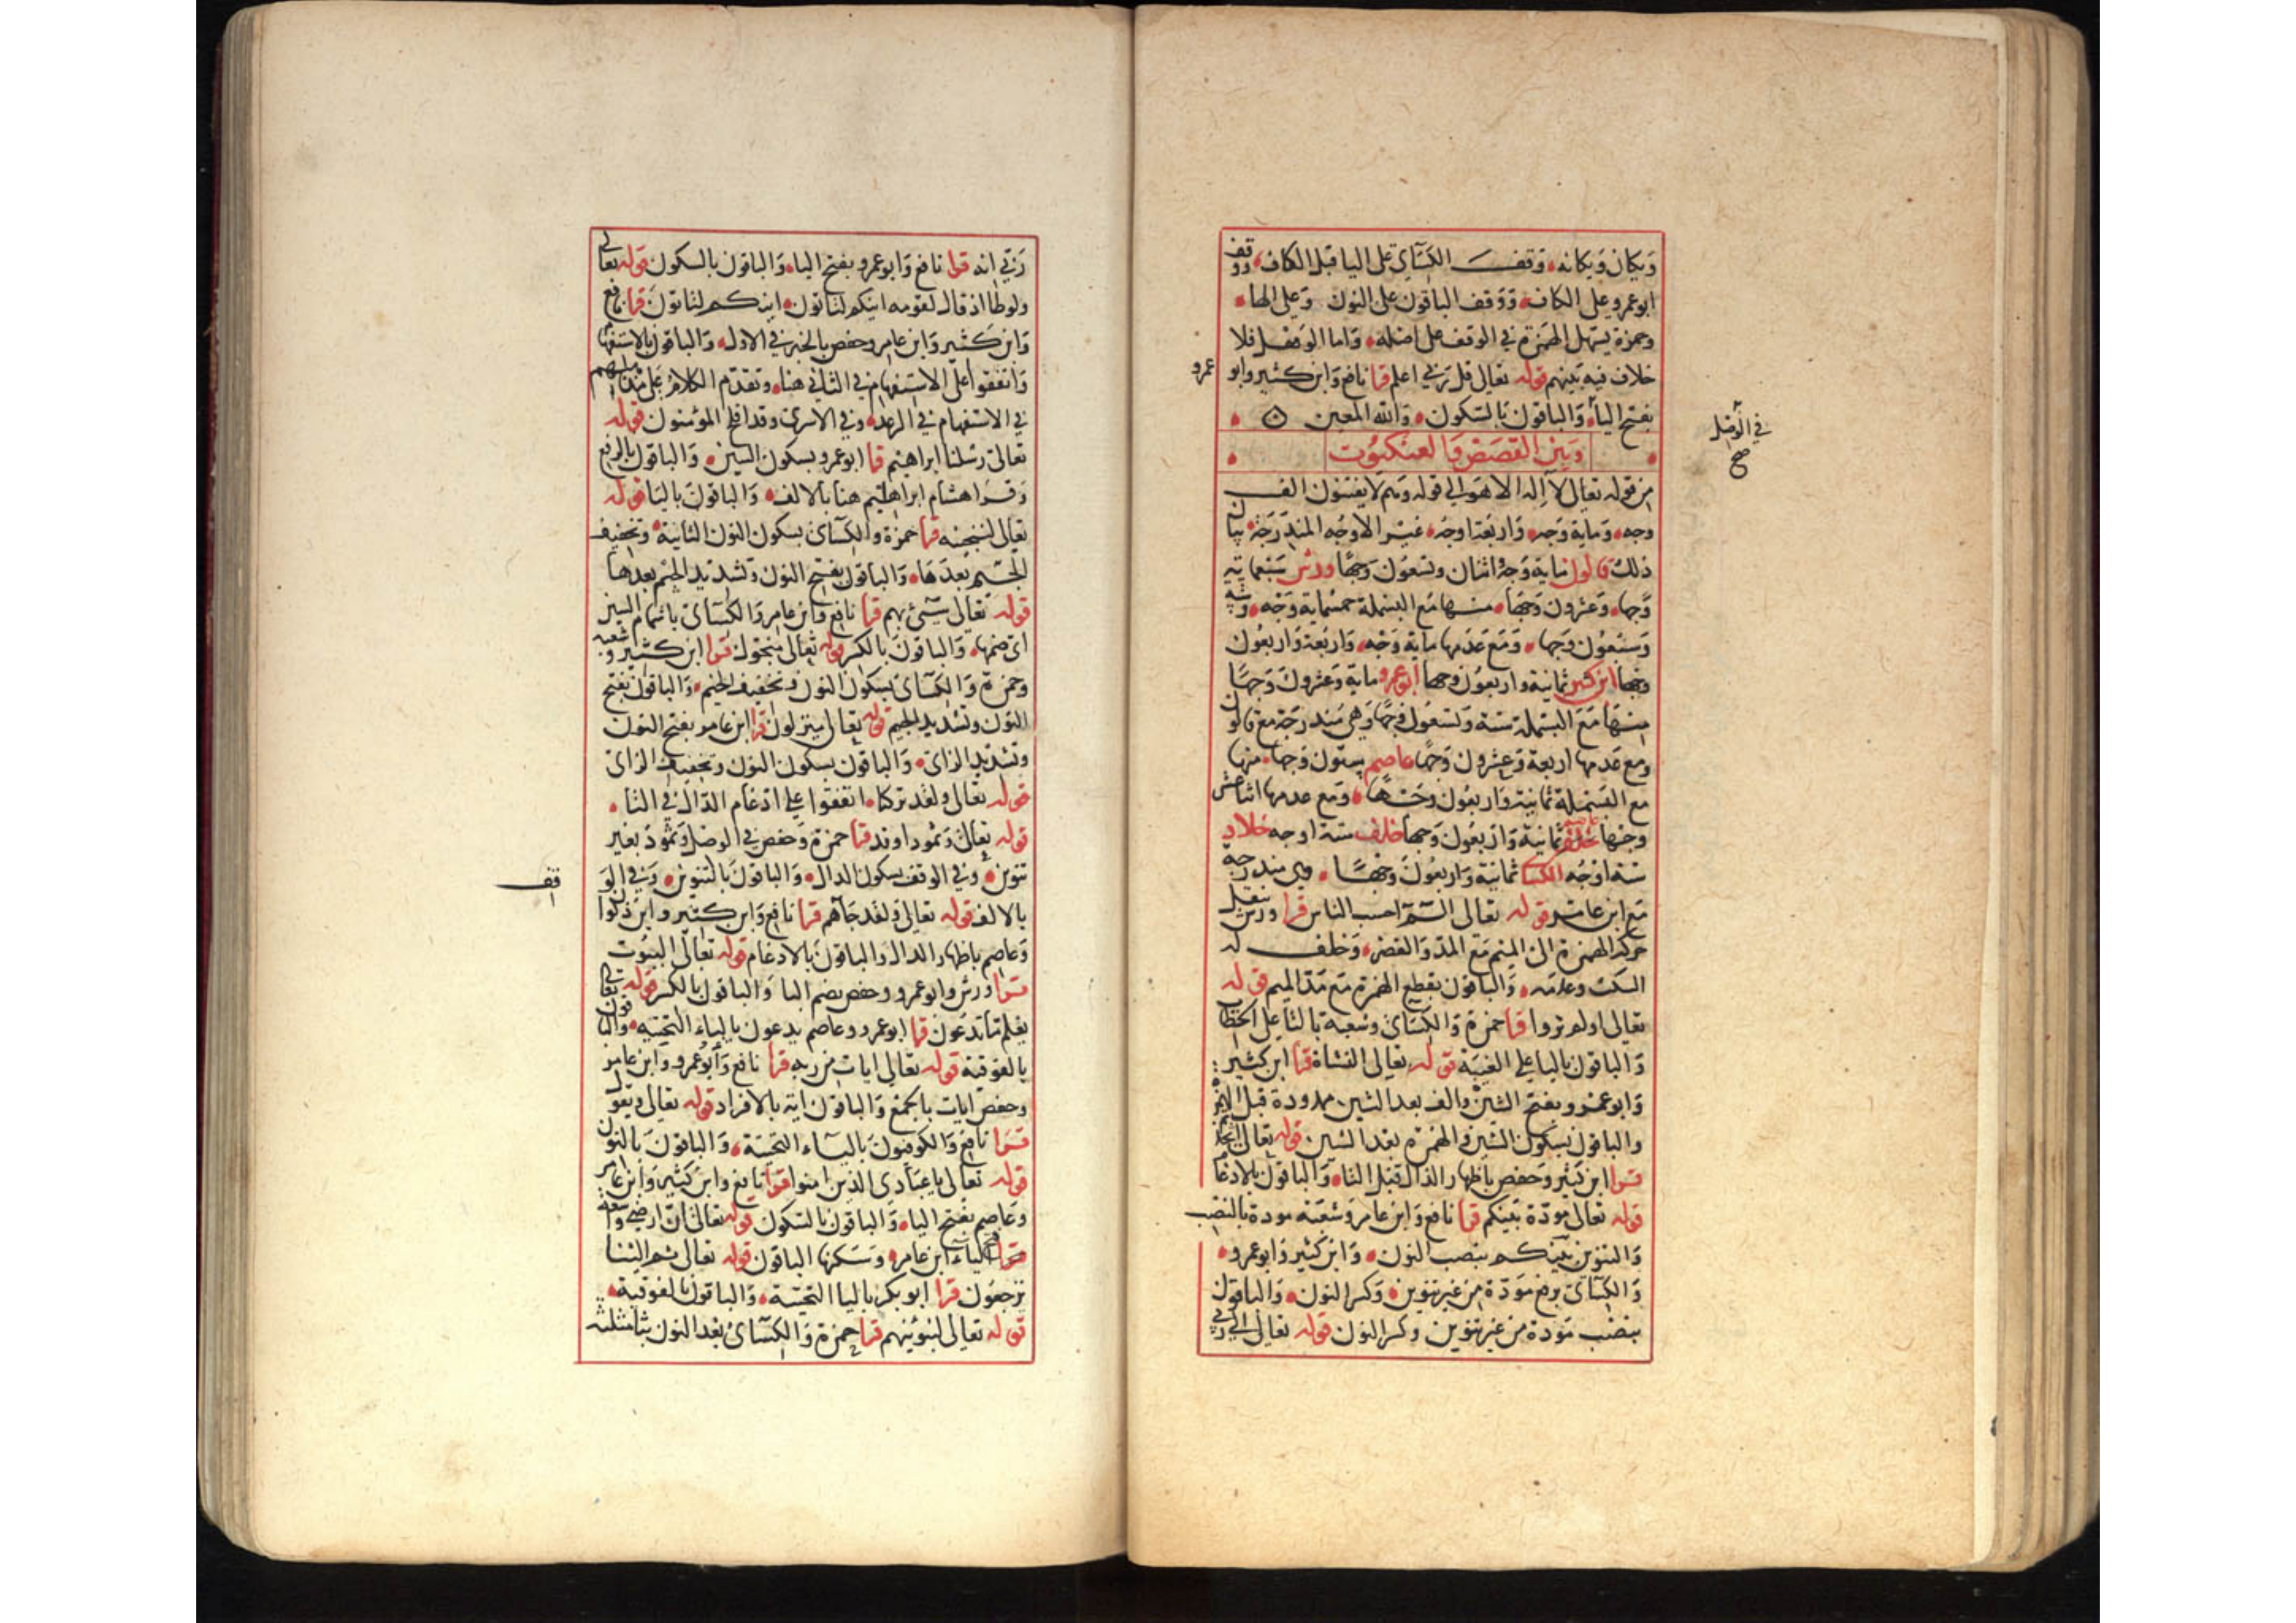 ويكان ويكانه وقف الكسآئ على اليا قبل الكاف ووقف
ابوعمرو على الكاف ووقف الباقون على النون وعلى الها
وحمزة يسهل الهمزة في الوقف على اصله واما الوصل فلا
خلاف فيه بينهم قوله تعالى قل ربي اعلم قرا نافع وابن كثير وابو عمرو
بفتح الياء والباقون بالسكون والله المعين
في الوصل
صح
وبين القصص والعنكبوت
من قوله تعالى لآ اله الا هو الى قوله وهم لا يفتنون الف
وجه وماية وجه واربعة اوجه غير الاوجه المندرجة بيان
ذلك قالون ماية وجه اثنان وتسعون وجها ورش سبعماية
وجها وعشرون وجها منها مع البسملة خمسماية وجه وستة
وسبعون وجها ومع عدمها ماية وجه واربعة واربعون
وجها ابن كثير ثمانية واربعون وجها ابوعمرو ماية وعشرون وجها
منها مع البسملة ستة وتسعون وجها وهي مندرجة مع قالون
ومع عدمها اربعة وعشرون وجها عاصم ستون وجها منها
مع البسملة ثمانية واربعون وجها ومع عدمها اثناعشر
وجها ثمانية واربعون وجها خلف ستة اوجه خلاد
ستة اوجه الكسا ثمانية واربعون وجها وهي مندرجة
مع ابن عامر قوله تعالى الٓمٓ احسب الناس قرا ورش بنقل
حركة الهمزة الى الميم مع المد والقصر وخلف له
السكت وعدمه والباقون بقطع الهمزة مع مد الميم قوله
تعالى اولم تروا قرا حمزة والكسآئ وشعبة بالتا على الخطاب
والباقون باليا على الغيبة قوله تعالى النشاة قرا ابن كثير
وابوعمرو بفتح الشين والف بعد الشين ممدودة قبل الهمزة
والباقون بسكون الشين والهمزة بعد الشين قوله تعالى اتخذتم
قرا ابن كثير وحفص باظهار الذال قبل التا والباقون بالادغام
قوله تعالى مودة بينكم قرا نافع وابن عامر وشعبة مودة بالنصب
والتنوين بينكم بنصب النون وابن كثير وابوعمرو
والكسآئ برفع مودة من غير تنوين وكسر النون والباقون
بنصب مودة من غير تنوين وكسر النون قوله تعالى الى ربي
ربي انه قرا نافع وابوعمرو بفتح اليا والباقون بالسكون قوله تعالى
ولوطا اذ قال لقومه اينكم لتاتون اينكم لتاتون قرا نافع
وابن كثير وابن عامر وحفص بالخبر في الاول والباقون بالاستفهام
واتفقوا على الاستفهام في الثاني هنا وتقدم الكلام على مذاهبهم
في الاستفهام في الرعد وفي الاسرى وقد افلح المؤمنون قوله
تعالى رسلنا ابراهيم قرا ابوعمرو بسكون السين والباقون بالرفع
وقرا هشام ابراهيم هنا بالالف والباقون باليا قوله
تعالى لننجينه قرا حمزة والكسآئ بسكون النون الثانية وتخفيف
الجيم بعدها والباقون بفتح النون وتشديد الجيم بعدها
قوله تعالى سيٓئ بهم قرا نافع وابن عامر والكسآئ باشمام السين
اي ضمها والباقون بالكسر قوله تعالى منجوك قرا ابن كثير وشعبه
وحمزة والكسآئ بسكون النون وتخفيف الجيم والباقون بفتح
النون وتشديد الجيم قوله تعالى منزلون قرا ابن عامر بفتح النون
وتشديد الزاي والباقون بسكون النون وتخفيف الزاي
قوله تعالى ولقد تركنا اتفقوا على ادغام الدال في التا
قوله تعالى وثمودا وقد قرا حمزة وحفص في الوصل وثمود بغير
تنوين وفي الوقف بسكون الدال والباقون بالتنوين وفي الو
قف
بالالف قوله تعالى ولقد جآهم قرا نافع وابن كثير وابن ذكوان
وعاصم باظهار الدال والباقون بالادغام قوله تعالى البيوت
قرا ورش وابوعمرو وحفص بضم البا والباقون بالكسر قوله تعالى
يعلم ما تدعون قرا ابوعمرو وعاصم يدعون بالياء التحتيه والباقون
بالفوقية قوله تعالى ايات من ربه قرا نافع وابوعمرو وابن عامر
وحفص ايات بالجمع والباقون اية بالافراد قوله تعالى ويقول
قرا نافع والكوفيون باليآء التحتية والباقون بالنون
قوله تعالى ياعبادي الذين امنوا قرا نافع وابن كثير وابن عامر
وعاصم بفتح اليا والباقون بالسكون قوله تعالى ان ارضي واسعة
فتح الياء ابن عامر وسكنها الباقون قوله تعالى ثم الينا
ترجعون قرا ابو بكر باليا التحتية والباقون بالفوقية
قوله تعالى لنبوئنهم قرا حمزة والكسآئ بعد النون بثا مثلثه